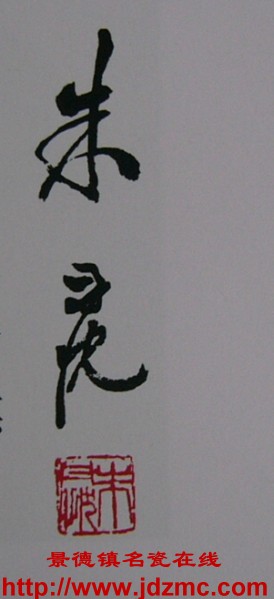 朱
朱
景德镇名瓷在线
http://www.jdzmc.com